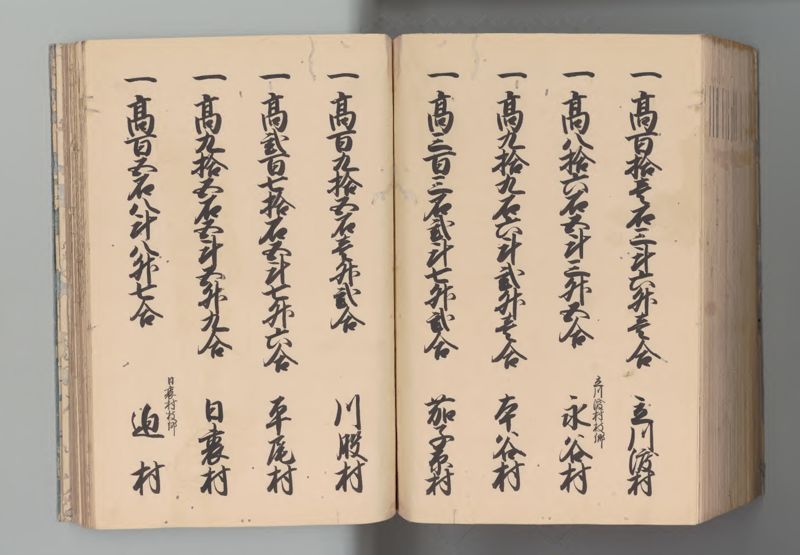 一 高百拾壱石三斗六升壱合 立川渡村
一 高八拾六石五斗三升五合 立川渡村枝郷 永谷村
一 高九拾九石六斗弐升壱合 本谷村
一 高三百三石弐斗七升弐合 茄子原村
一 高百九拾五石壱升弐合 川股村
一 高弐百七拾石五斗七升六合 平尾村
一 高九拾五石五斗五升九合 日裏村
一 高百五石八斗八升七合 日裏村枝郷 迫村